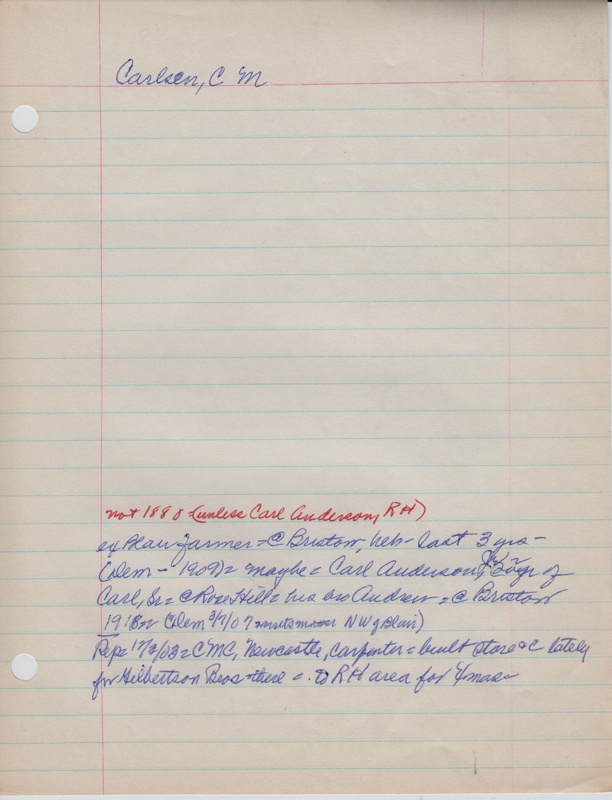 Carlsen, C M
not 1880 = (unless Carl Anderson, RH)
ex Blair farmer = @ Bristow, Neb - last 3 yrs -
(Clem - 1909) = maybe = Carl Anderson, Jr = of
Carl, Sr = @ Rose Hill = his bro Andrew = @ Bristow
1918 = Clem 3/7/07 = NW of Blair)
Rep = 12/3/03 = C M C, Newcastle, Carpenter = built store @ C lately
for Hilbertson Bros there = to RH area for 4 mos =